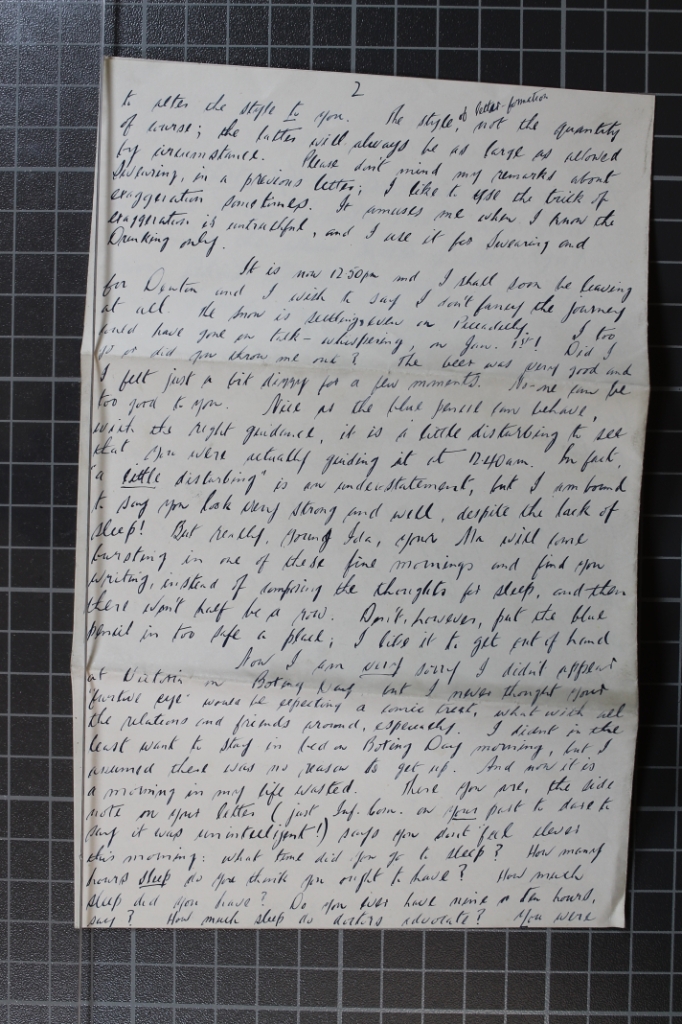 2
to alter the style to you. The style, of letter formation
of course; not the quantity
the latter will always be as large as allowed
by circumstance. Please don't mind my remarks about
Swearing, in a previous letter; I like to use the trick of
exaggeration sometimes. It amuses me when I know the
exaggeration is untruthful, and I use it for Swearing and
Drinking only.
It is now 12.50pm and I shall soon be leaving
for and I wish to say I don't fancy the journey
at all. The snow is settling even on Piccadilly. I too
could have gone on talk-whispering, on Jan. 1st! Did I
go or did you throw me out? The beer was very good and
I felt just a bit dizzy for a few moments. No-one can be
too good to you. Nice as the blue pencil can behave,
with the right guidance, it is a little disturbing to see
that you were actually guiding it at 12.40am. In fact,
"a little disturbing" is an understatement, but I am bound
to say you look very strong and well, despite the lack of
sleep! But really, young Ida, your Ma will come
bursting in one of these fine mornings and find you
writing, instead of composing the thoughts for sleep, and then
there won't half be a row. Don't, however, put the blue
pencil in too safe a place; I like it to get out of hand
Now I am very sorry I didn't appear
at Victoria on Boxing Day but I never thought your
'furtive eye' would be expecting a comic crest, what with all
the relations and friends around, especially. I didn't in the
least want to stay in bed on Boxing Day morning, but I
assumed there was no reason to get up. And now it is
a morning in my life wasted. There you are, the side
note on your letter (just Inf. Com. on your part to dare to
say it was unintelligent!) says you don't feel clever
this morning: what time did you go to sleep? How many
hours sleep do you think you ought to have? How much
sleep did you have? Do you ever have nine or ten hours,
say? How much sleep do doctors advocate? You were